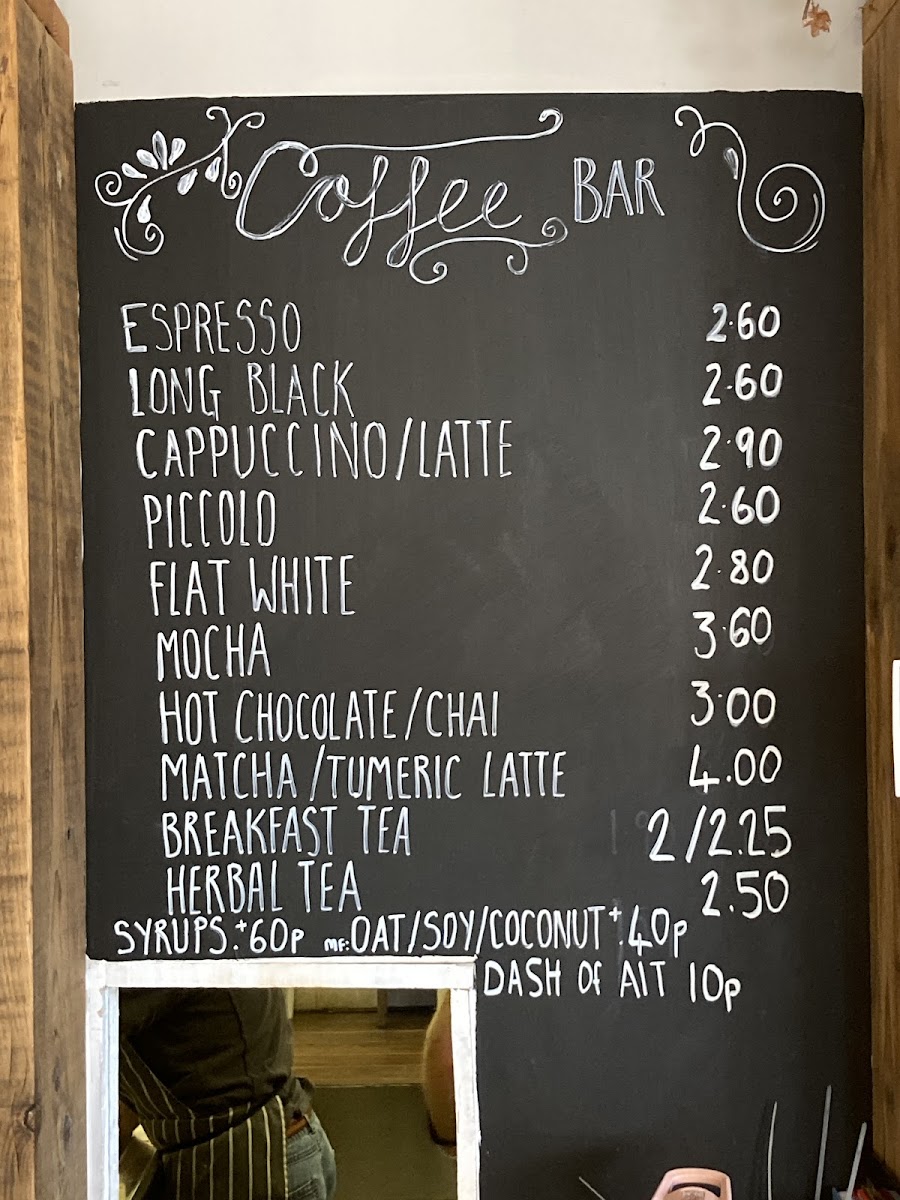 Coffee BAR
ESPRESSO 2.60
LONG BLACK 2.60
CAPPUCCINO/LATTE 2.90
PICCOLO 2.60
FLAT WHITE 2.80
MOCHA 3.60
HOT CHOCOLATE/CHAI 3.00
MATCHA/TUMERIC LATTE 4.00
BREAKFAST TEA 2/2.25
HERBAL TEA 2.50
SYRUPS.+60p MF:OAT/SOY/COCONUT+.40p
DASH OF AIT 10p